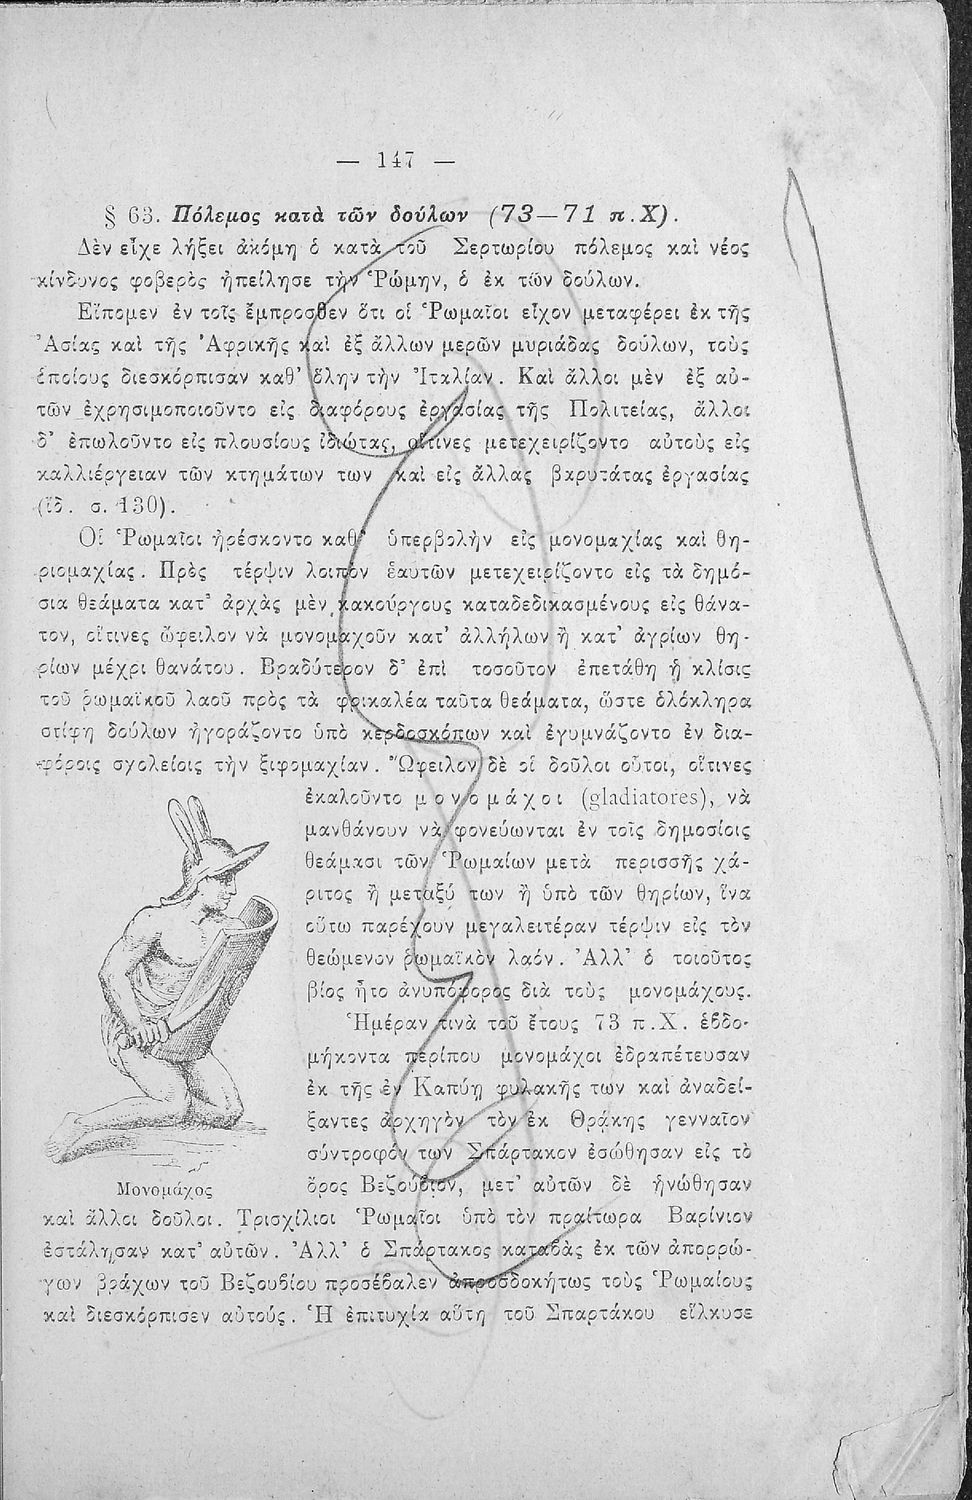 — 147 —
§ 63. Πόλεμος κατὰ τῶν δούλων (73—71 π.Χ).
Δὲν εἶχε λήξει ἀκόμη ὁ κατὰ τοῦ Σερτωρίου πόλεμος καὶ νέος
κίνδυνος φοβερὸς ἠπείλησε τὴν Ῥώμην, ὁ ἐκ τῶν δούλων.
Εἴπομεν ἐν τοῖς ἔμπροσθεν ὅτι οἱ Ῥωμαῖοι εἶχον μεταφέρει ἐκ τῆς
Ἀσίας καὶ τῆς Ἀφρικῆς καὶ ἐξ ἄλλων μερῶν μυριάδας δούλων, τοὺς
ὁποίους διεσκόρπισαν καθ’ ὅλην τὴν Ἰταλίαν. Καὶ ἄλλοι μὲν ἐξ αὐ-
τῶν ἐχρησιμοποιοῦντο εἰς διαφόρους ἐργασίας τῆς Πολιτείας, ἄλλοι
δ’ ἐπωλοῦντο εἰς πλουσίους ἰδιώτας, οἵτινες μετεχειρίζοντο αὐτοὺς εἰς
καλλιέργειαν τῶν κτημάτων των καὶ εἰς ἄλλας βαρυτάτας ἐργασίας
(ἰδ. σ. 130).
Οἱ Ῥωμαῖοι ἠρέσκοντο καθ’ ὑπερβολὴν εἰς μονομαχίας καὶ θη-
ριομαχίας. Πρὸς τέρψιν λοιπὸν ἑαυτῶν μετεχειρίζοντο εἰς τὰ δημό-
σια θεάματα κατ’ ἀρχὰς μὲν κακούργους καταδεδικασμένους εἰς θάνα-
τον, οἵτινες ὤφειλον νὰ μονομαχοῦν κατ’ ἀλλήλων ἢ κατ’ ἀγρίων θη-
ρίων μέχρι θανάτου. Βραδύτερον δ’ ἐπὶ τοσοῦτον ἐπετάθη ἡ κλίσις
τοῦ ῥωμαϊκοῦ λαοῦ πρὸς τὰ φρικαλέα ταῦτα θεάματα, ὥστε ὁλόκληρα
στίφη δούλων ἠγοράζοντο ὑπὸ κερδοσκόπων καὶ ἐγυμνάζοντο ἐν δια-
φόροις σχολείοις τὴν ξιφομαχίαν. Ὤφειλον δὲ οἱ δοῦλοι οὗτοι, οἵτινες
ἐκαλοῦντο μονομάχοι (gladiatores), νὰ
μανθάνουν νὰ φονεύωνται ἐν τοῖς δημοσίοις
θεάμασι τῶν Ῥωμαίων μετὰ περισσῆς χά-
ριτος ἢ μεταξύ των ἢ ὑπὸ τῶν θηρίων, ἵνα
οὕτω παρέχουν μεγαλειτέραν τέρψιν εἰς τὸν
θεώμενον ῥωμαϊκὸν λαόν. Ἀλλ’ ὁ τοιοῦτος
βίος ἦτο ἀνυπόφορος διὰ τοὺς μονομάχους.
Ἡμέραν τινὰ τοῦ ἔτους 73 π.Χ. ἑβδο-
μήκοντα περίπου μονομάχοι ἐδραπέτευσαν
ἐκ τῆς ἐν Καπύῃ φυλακῆς των καὶ ἀναδεί-
ξαντες ἀρχηγὸν τὸν ἐκ Θρᾴκης γενναῖον
σύντροφόν των Σπάρτακον ἐσώθησαν εἰς τὸ
ὄρος Βεζούβιον, μετ’ αὐτῶν δὲ ἡνώθησαν
Μονομάχος
καὶ ἄλλοι δοῦλοι. Τρισχίλιοι Ῥωμαῖοι ὑπὸ τὸν πραίτωρα Βαρίνιον
ἐστάλησαν κατ’ αὐτῶν. Ἀλλ’ ὁ Σπάρτακος καταβὰς ἐκ τῶν ἀπορρώ-
γων βράχων τοῦ Βεζουβίου προσέβαλεν ἀπροσδοκήτως τοὺς Ῥωμαίους
καὶ διεσκόρπισεν αὐτούς. Ἡ ἐπιτυχία αὕτη τοῦ Σπαρτάκου εἵλκυσε